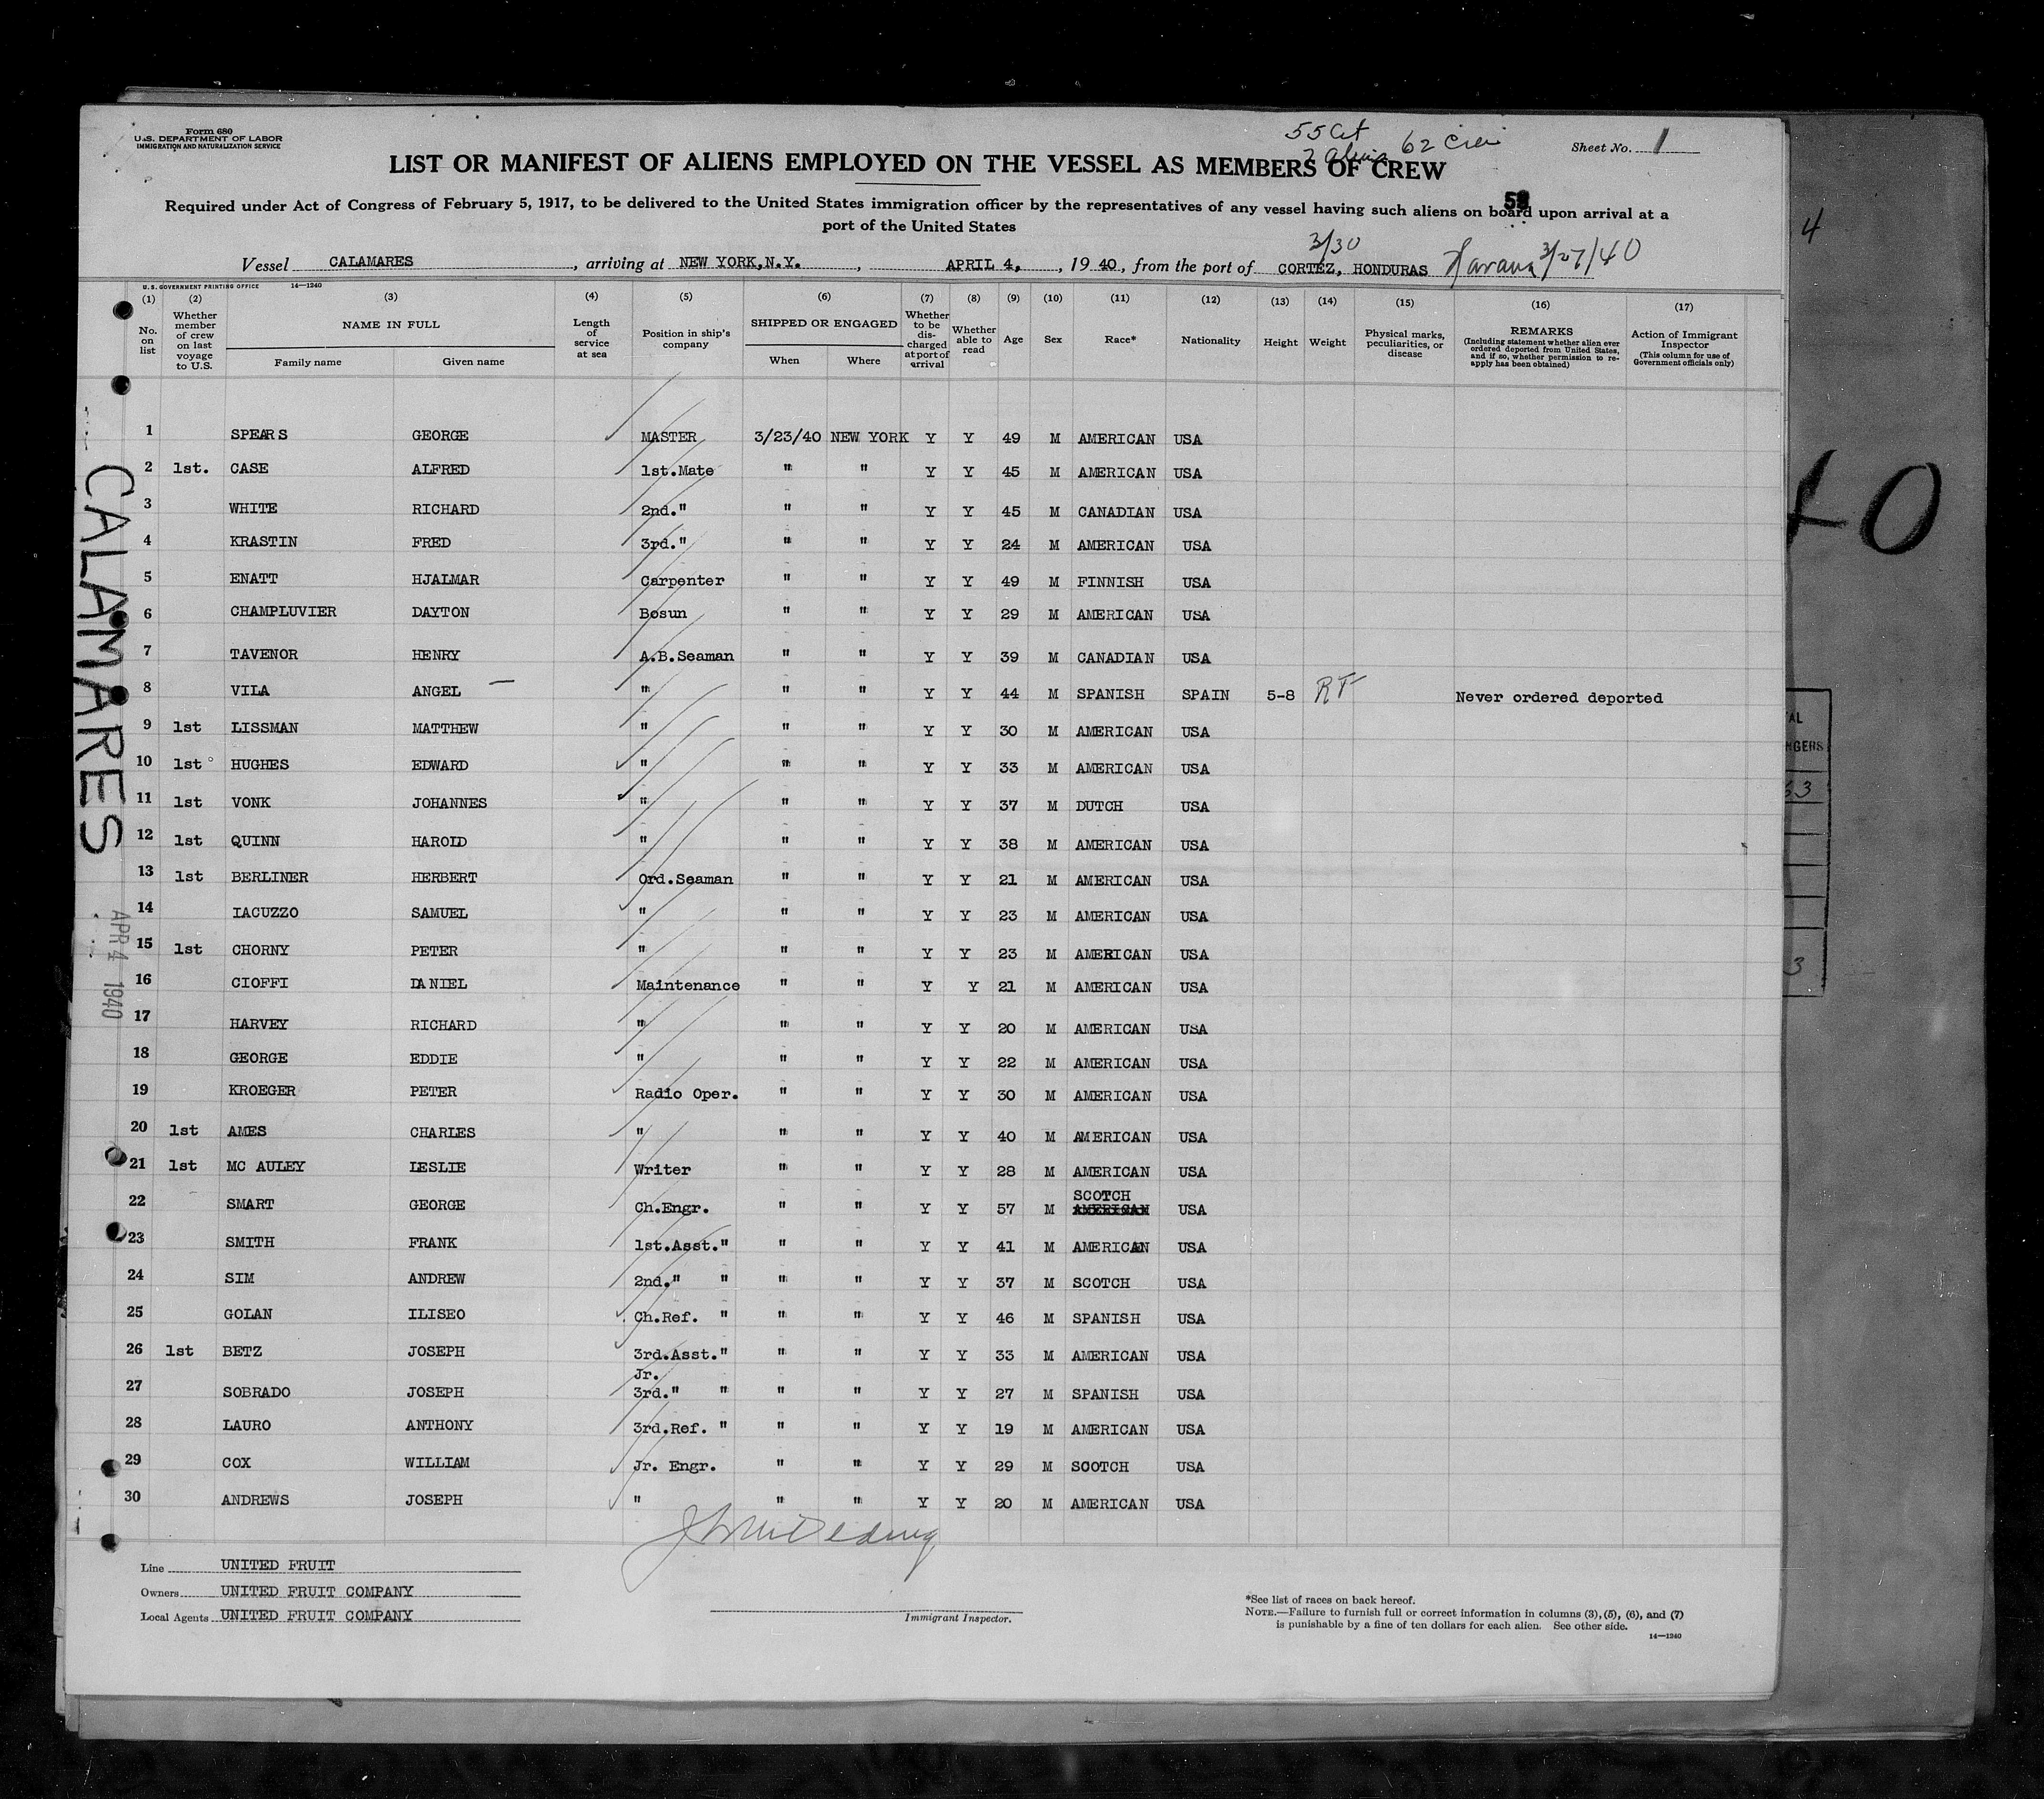 Form 680
U.S. DEPARTMENT OF LABOR
IMMIGRATION AND NATURALIZATION SERVICE
55 Cit
62 Crew
Sheet No. 1
LIST OR MANIFEST OF ALIENS EMPLOYED ON THE VESSEL AS MEMBERS OF CREW
Required under Act of Congress of February 5, 1917, to be delivered to the United States immigration officer by the representatives of any vessel having such aliens on board upon arrival at a
port of the United States
3/30
Vessel CALAMARES, arriving at NEW YORK,N.Y., APRIL 4, 1940, from the port of CORTEZ, HONDURAS Havana 3/27/40
U.S. GOVERNMENT PRINTING OFFICE 14—1240
(1) No. on list
(2) Whether member of crew on last voyage to U.S.
(3) NAME IN FULL
Family name Given name
(4) Length of service at sea
(5) Position in ship's company
(6) SHIPPED OR ENGAGED
When Where
(7) Whether to be discharged at port of arrival
(8) Whether able to read
(9) Age
(10) Sex
(11) Race*
(12) Nationality
(13) Height
(14) Weight
(15) Physical marks, peculiarities, or disease
(16) REMARKS (Including statement whether alien ever ordered deported from United States, and if so, whether permission to re-apply has been obtained)
(17) Action of Immigrant Inspector (This column for use of Government officials only)
1 SPEARS GEORGE MASTER 3/23/40 NEW YORK Y Y 49 M AMERICAN USA
2 1st. CASE ALFRED 1st.Mate " " Y Y 45 M AMERICAN USA
3 WHITE RICHARD 2nd." " " Y Y 45 M CANADIAN USA
4 KRASTIN FRED 3rd." " " Y Y 24 M AMERICAN USA
5 ENATT HJALMAR Carpenter " " Y Y 49 M FINNISH USA
6 CHAMPLUVIER DAYTON Bosun " " Y Y 29 M AMERICAN USA
7 TAVENOR HENRY A.B.Seaman " " Y Y 39 M CANADIAN USA
8 VILA ANGEL — " " " Y Y 44 M SPANISH SPAIN 5-8 RF Never ordered deported
9 1st LISSMAN MATTHEW " " " Y Y 30 M AMERICAN USA
10 1st HUGHES EDWARD " " " Y Y 33 M AMERICAN USA
11 1st VONK JOHANNES " " " Y Y 37 M DUTCH USA
12 1st QUINN HAROLD " " " Y Y 38 M AMERICAN USA
13 1st BERLINER HERBERT Ord.Seaman " " Y Y 21 M AMERICAN USA
14 IACUZZO SAMUEL " " " Y Y 23 M AMERICAN USA
15 1st CHORNY PETER " " " Y Y 23 M AMERICAN USA
16 CIOFFI DANIEL Maintenance " " Y Y 21 M AMERICAN USA
17 HARVEY RICHARD " " " Y Y 20 M AMERICAN USA
18 GEORGE EDDIE " " " Y Y 22 M AMERICAN USA
19 KROEGER PETER Radio Oper. " " Y Y 30 M AMERICAN USA
20 1st AMES CHARLES " " " Y Y 40 M AMERICAN USA
21 1st MC AULEY LESLIE Writer " " Y Y 28 M AMERICAN USA
22 SMART GEORGE Ch.Engr. " " Y Y 57 M SCOTCH AMERICAN USA
23 SMITH FRANK 1st.Asst." " " Y Y 41 M AMERICAN USA
24 SIM ANDREW 2nd." " " " Y Y 37 M SCOTCH USA
25 GOLAN ILISEO Ch.Ref. " " " Y Y 46 M SPANISH USA
26 1st BETZ JOSEPH 3rd.Asst." " " Y Y 33 M AMERICAN USA
27 SOBRADO JOSEPH Jr. 3rd." " " " Y Y 27 M SPANISH USA
28 LAURO ANTHONY 3rd.Ref. " " " Y Y 19 M AMERICAN USA
29 COX WILLIAM Jr. Engr. " " Y Y 29 M SCOTCH USA
30 ANDREWS JOSEPH " " " Y Y 20 M AMERICAN USA
Line UNITED FRUIT
Owners UNITED FRUIT COMPANY
Local Agents UNITED FRUIT COMPANY
Immigrant Inspector.
*See list of races on back hereof.
NOTE.—Failure to furnish full or correct information in columns (3), (5), (6), and (7)
is punishable by a fine of ten dollars for each alien. See other side.
14—1240
CALAMARES
APR 4 1940
4
40
63
3